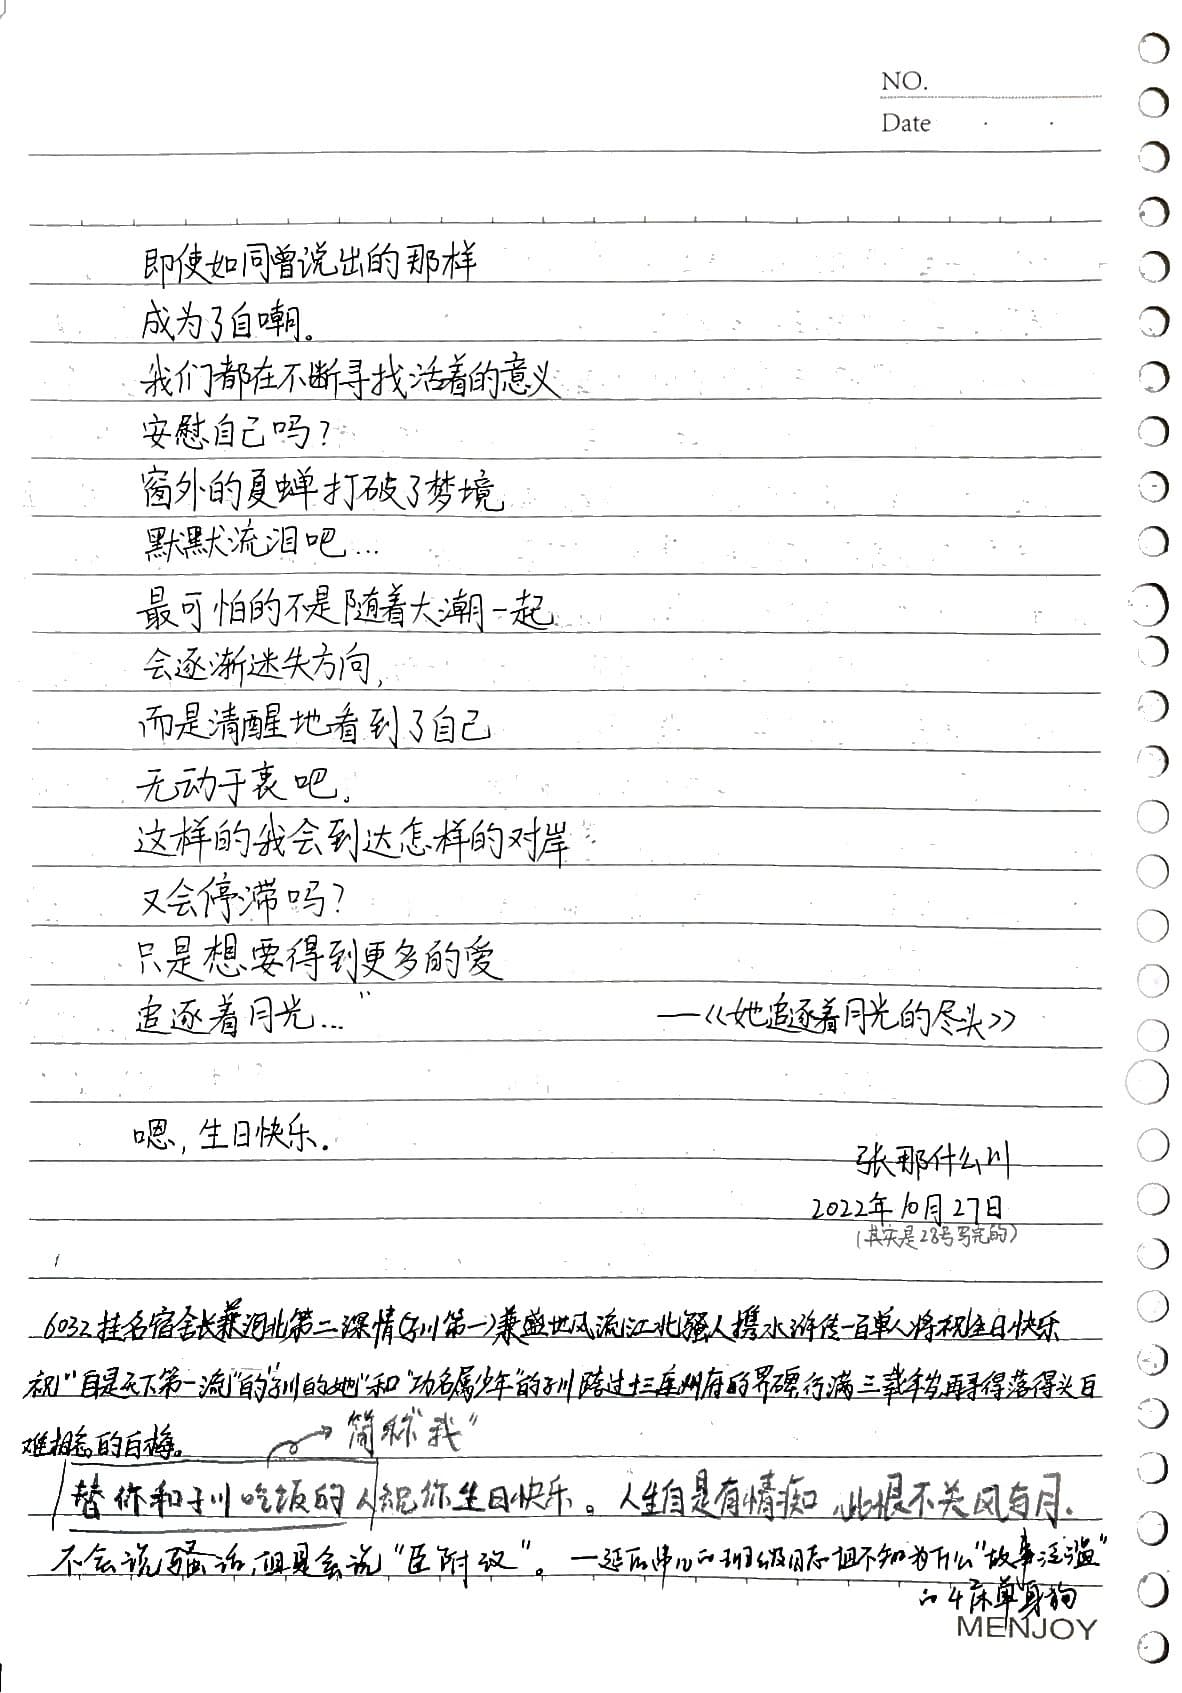 NO.
Date
即使如同曾说出的那样
成为了自嘲。
我们都在不断寻找活着的意义
安慰自己吗？
窗外的夏蝉打破了梦境
默默流泪吧…
最可怕的不是随着大潮一起
会逐渐迷失方向，
而是清醒地看到了自己
无动于衷吧。
这样的我会到达怎样的对岸
又会停滞吗？
只是想要得到更多的爱
追逐着月光…”
—《她追逐着月光的尽头》
嗯，生日快乐.
张那什么川
2022年10月27日
(其实是28号写完的)
6032挂名宿舍长兼河北第二深情(子川第一)兼盛世风流江北骚人携水浒传一百单八将祝生日快乐
祝“自是天下第一流”的“子川的她”和“功名属少年”的子川踏过十三座州府的界碑行满三载 再寻得落得头白
难相忘的白梅。
简称“我”
替你和子川吃饭的人祝你生日快乐。人生自是有情痴 此恨不关风与月.
不会说骚话，但是会说“臣附议”。 —延后 的班级日志但不知为什么“故事泛滥”
的4床单身狗
MENJOY